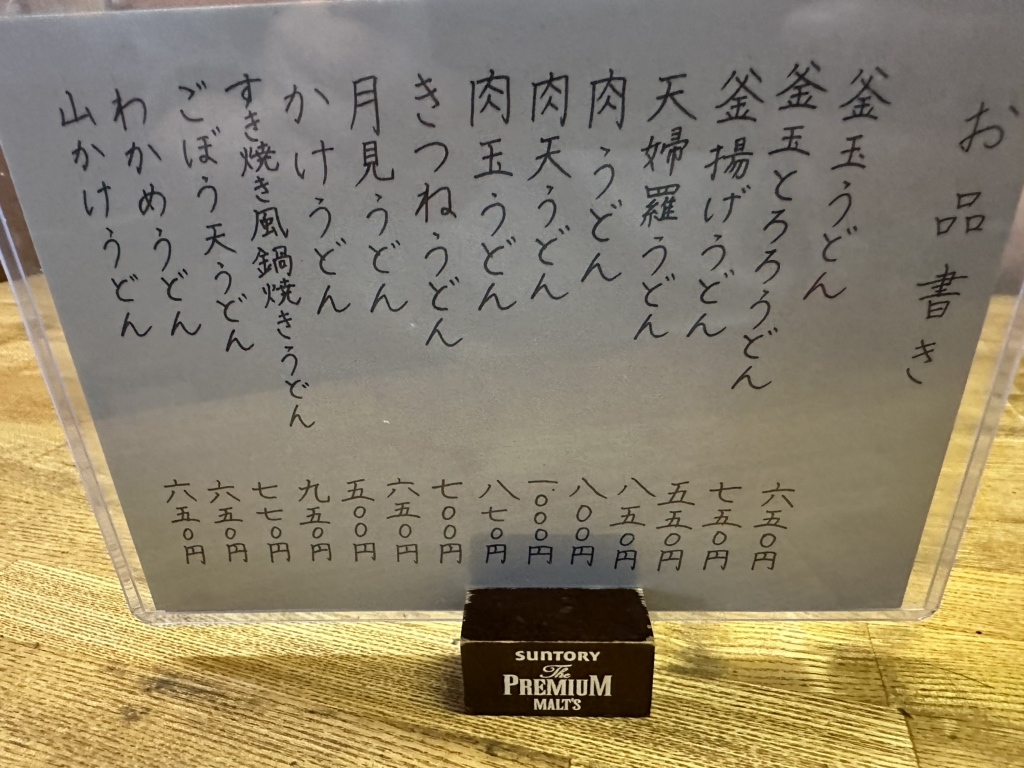 お品書き
釜玉うどん 六五〇円
釜玉とろろうどん 七五〇円
釜揚げうどん 五五〇円
天婦羅うどん 八五〇円
肉うどん 八〇〇円
肉天うどん 一〇〇〇円
肉玉うどん 八七〇円
きつねうどん 七〇〇円
月見うどん 六五〇円
かけうどん 五〇〇円
すき焼き風鍋焼きうどん 九五〇円
ごぼう天うどん 七七〇円
わかめうどん 六五〇円
山かけうどん 六五〇円
SUNTORY
The
PREMIUM
MALT'S